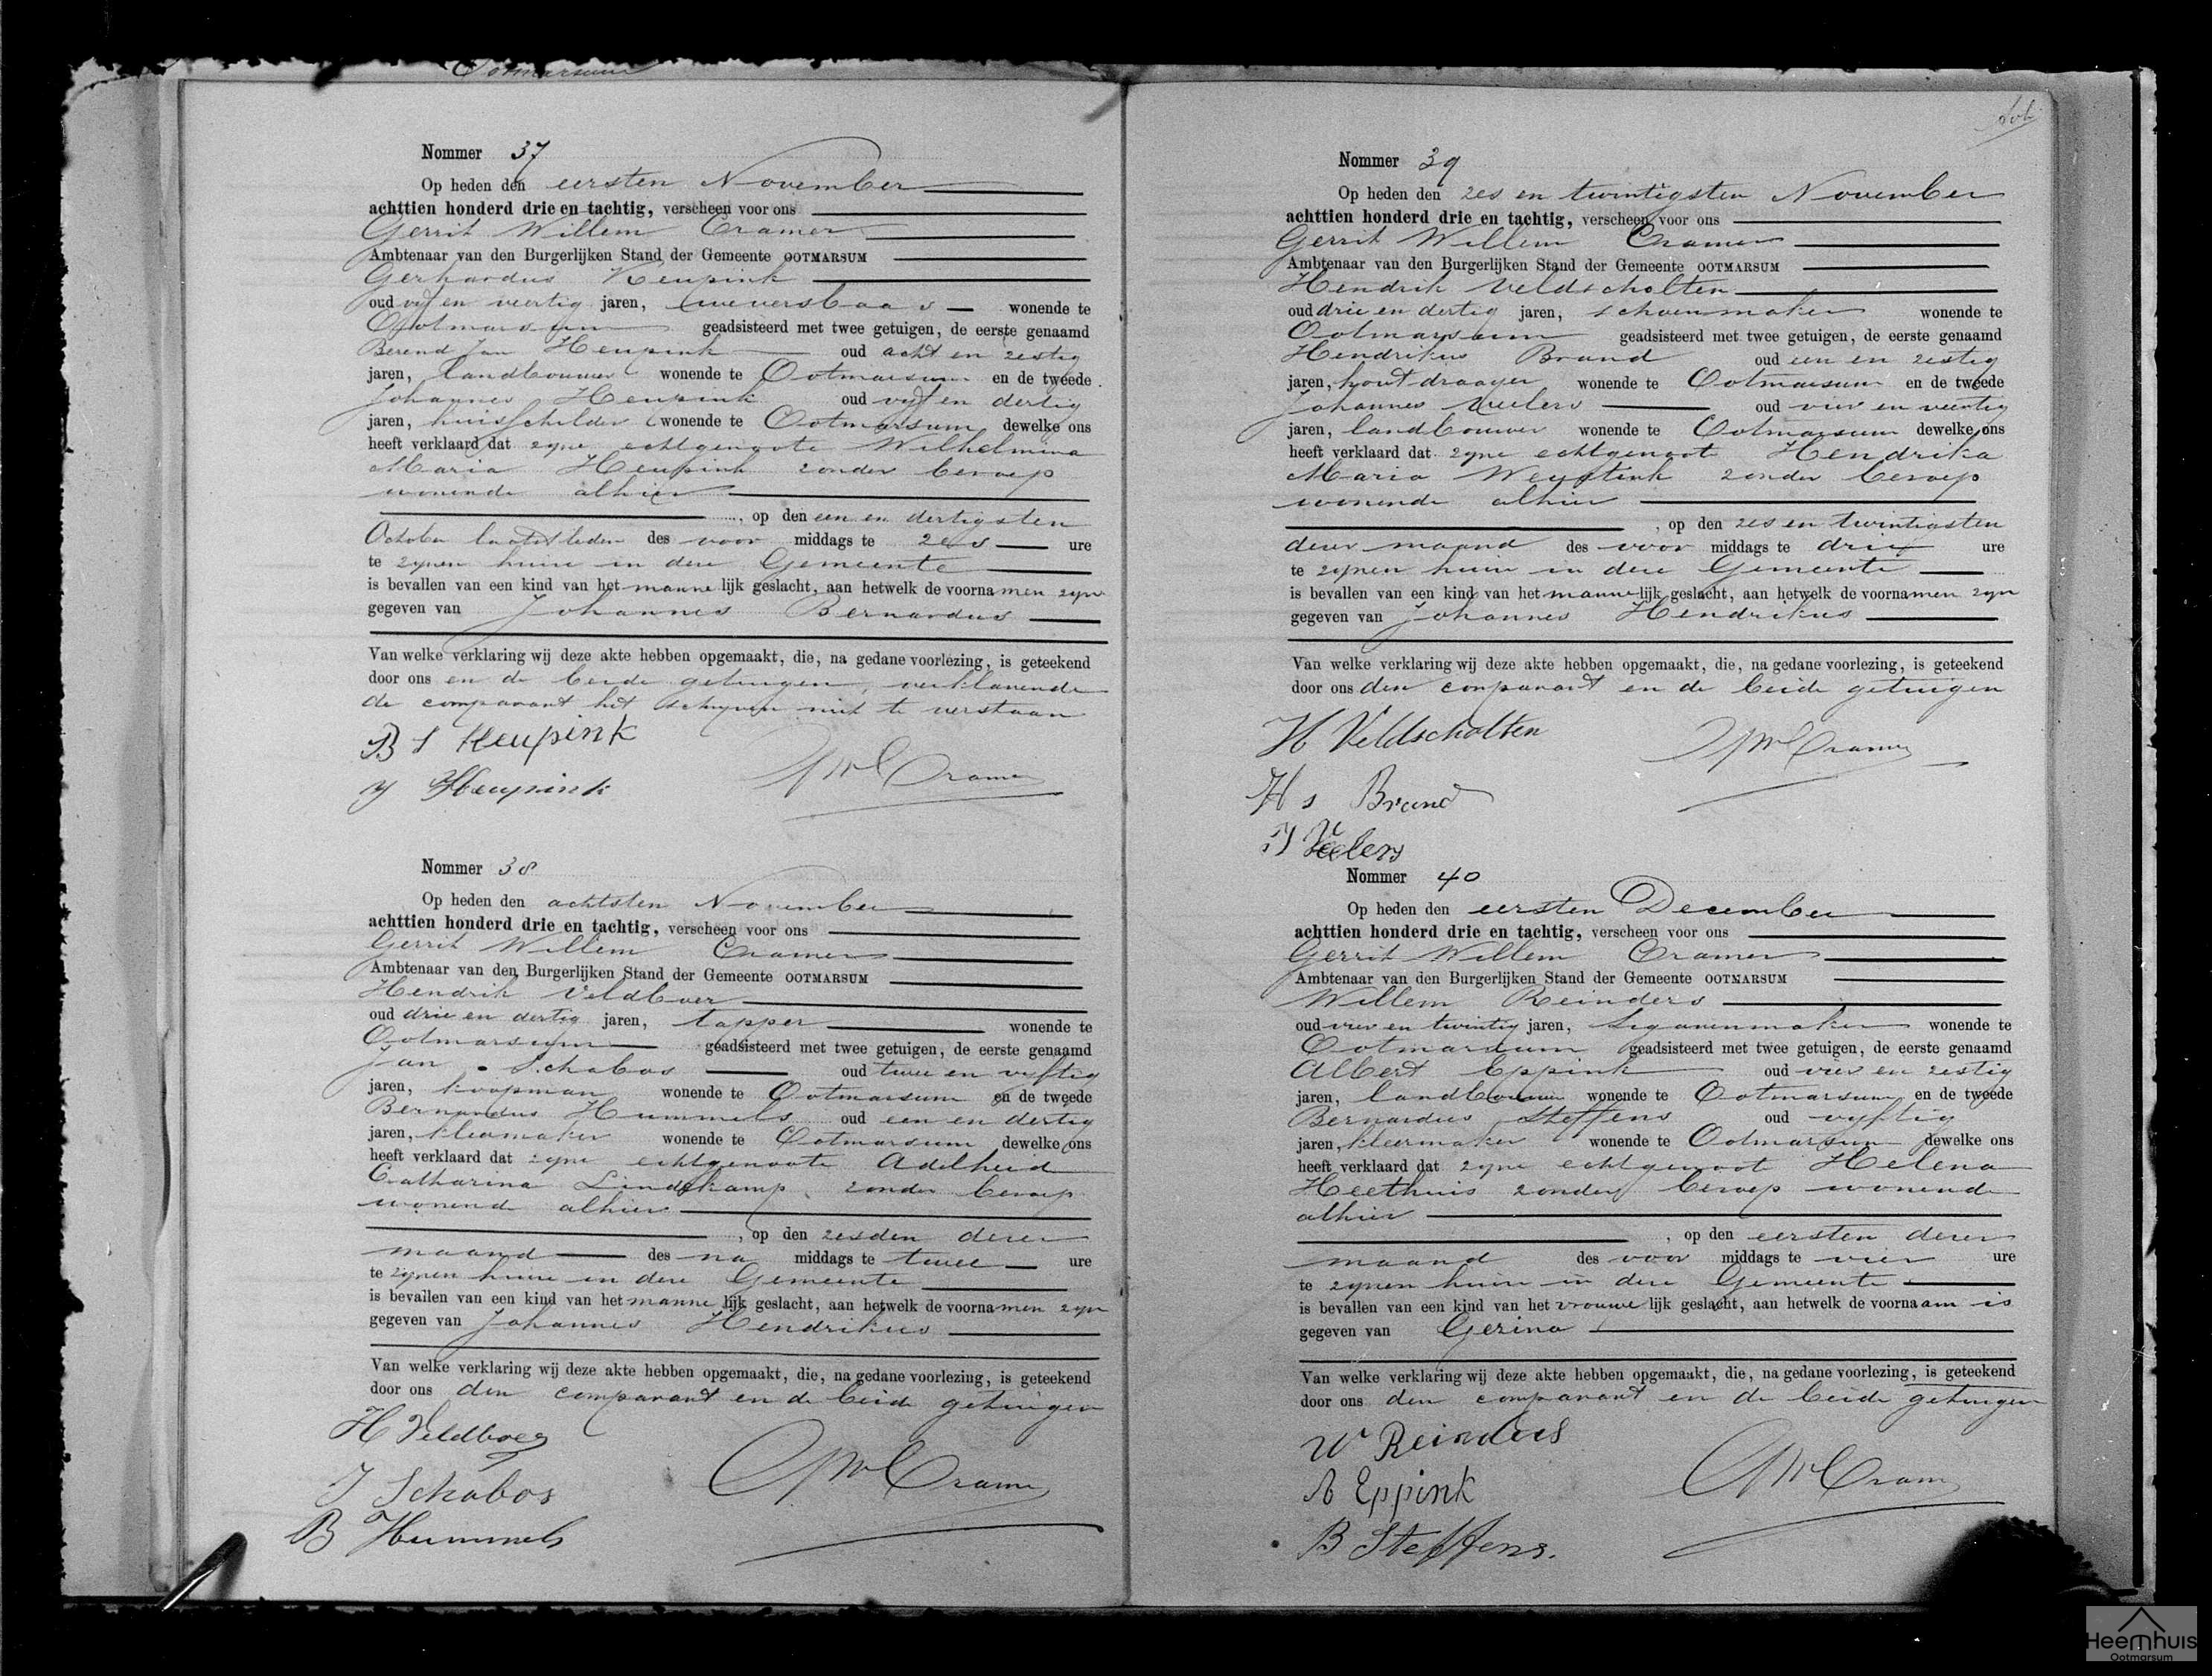 Ootmarsum
Nommer 37
Op heden den eersten November
achttien honderd drie en tachtig, verscheen voor ons
Gerrit Willem Cramer
Ambtenaar van den Burgerlijken Stand der Gemeente OOTMARSUM
Gerhardus Heupink
oud vyf en veertig jaren, weversbaas wonende te
Ootmarsum geadsisteerd met twee getuigen, de eerste genaamd
Berend Jan Heupink oud acht en zestig
jaren, landbouwer wonende te Ootmarsum en de tweede
Johannes Heupink oud vyf en dertig
jaren, huisschilder wonende te Ootmarsum dewelke ons
heeft verklaard dat zyne echtgenoote Wilhelmina
Maria Heupink zonder beroep
wonende alhier
, op den een en dertigsten
October laatstleden des voor middags te zes ure
te zynen huize in deze Gemeente
is bevallen van een kind van het mannelijk geslacht, aan hetwelk de voornamen zyn
gegeven van Johannes Bernardus
Van welke verklaring wij deze akte hebben opgemaakt, die, na gedane voorlezing, is geteekend
door ons en de beide getuigen, verklarende
de comparant het schryven niet te verstaan
B J Heupink
J Heupink
GW Cramer
Nommer 38
Op heden den achtsten November
achttien honderd drie en tachtig, verscheen voor ons
Gerrit Willem Cramer
Ambtenaar van den Burgerlijken Stand der Gemeente OOTMARSUM
Hendrik Veldboer
oud drie en dertig jaren, tapper wonende te
Ootmarsum geadsisteerd met twee getuigen, de eerste genaamd
Jan Schabos oud twee en vyftig
jaren, koopman wonende te Ootmarsum en de tweede
Bernardus Hummels oud een en dertig
jaren, kleermaker wonende te Ootmarsum dewelke ons
heeft verklaard dat zyne echtgenoote Adelheid
Catharina Lindskamp, zonder beroep
wonende alhier
, op den zesden dezer
maand des na middags te twee ure
te zynen huize in deze Gemeente
is bevallen van een kind van het mannelijk geslacht, aan hetwelk de voornamen zyn
gegeven van Johannes Hendrikus
Van welke verklaring wij deze akte hebben opgemaakt, die, na gedane voorlezing, is geteekend
door ons den comparant en de beide getuigen
H Veldboer
J Schabos
B Hummels
GW Cramer
Nommer 39
Op heden den zes en twintigsten November
achttien honderd drie en tachtig, verscheen voor ons
Gerrit Willem Cramer
Ambtenaar van den Burgerlijken Stand der Gemeente OOTMARSUM
Hendrik Veldscholten
oud drie en dertig jaren, schoenmaker wonende te
Ootmarsum geadsisteerd met twee getuigen, de eerste genaamd
Hendrikus Brand oud een en zestig
jaren, houtdraayer wonende te Ootmarsum en de tweede
Johannes Veelers oud vier en veertig
jaren, landbouwer wonende te Ootmarsum dewelke ons
heeft verklaard dat zyne echtgenoot Hendrika
Maria zonder beroep
wonende alhier
, op den zes en twintigsten
dezer maand des voor middags te drie ure
te zynen huize in deze Gemeente
is bevallen van een kind van het mannelijk geslacht, aan hetwelk de voornamen zyn
gegeven van Johannes Hendrikus
Van welke verklaring wij deze akte hebben opgemaakt, die, na gedane voorlezing, is geteekend
door ons den comparant en de beide getuigen
H Veldscholten
Hs Brand
GW Cramer
Nommer 40
Op heden den eersten December
achttien honderd drie en tachtig, verscheen voor ons
Gerrit Willem Cramer
Ambtenaar van den Burgerlijken Stand der Gemeente OOTMARSUM
Willem Reinders
oud vier en twintig jaren, Sigarenmaker wonende te
Ootmarsum geadsisteerd met twee getuigen, de eerste genaamd
Albert Eppink oud vier en zestig
jaren, landbouwer wonende te Ootmarsum en de tweede
Bernardus Steffens oud vyftig
jaren, kleermaker wonende te Ootmarsum dewelke ons
heeft verklaard dat zyne echtgenoot Helena
Heethuis zonder beroep wonende
alhier
, op den eersten dezer
maand des voor middags te vier ure
te zynen huize in deze Gemeente
is bevallen van een kind van het vrouwelijk geslacht, aan hetwelk de voornaam is
gegeven van Gezina
Van welke verklaring wij deze akte hebben opgemaakt, die, na gedane voorlezing, is geteekend
door ons den comparant en de beide getuigen
W Reinders
A Eppink
B Steffens.
GW Cramer
Heemhuis
Ootmarsum